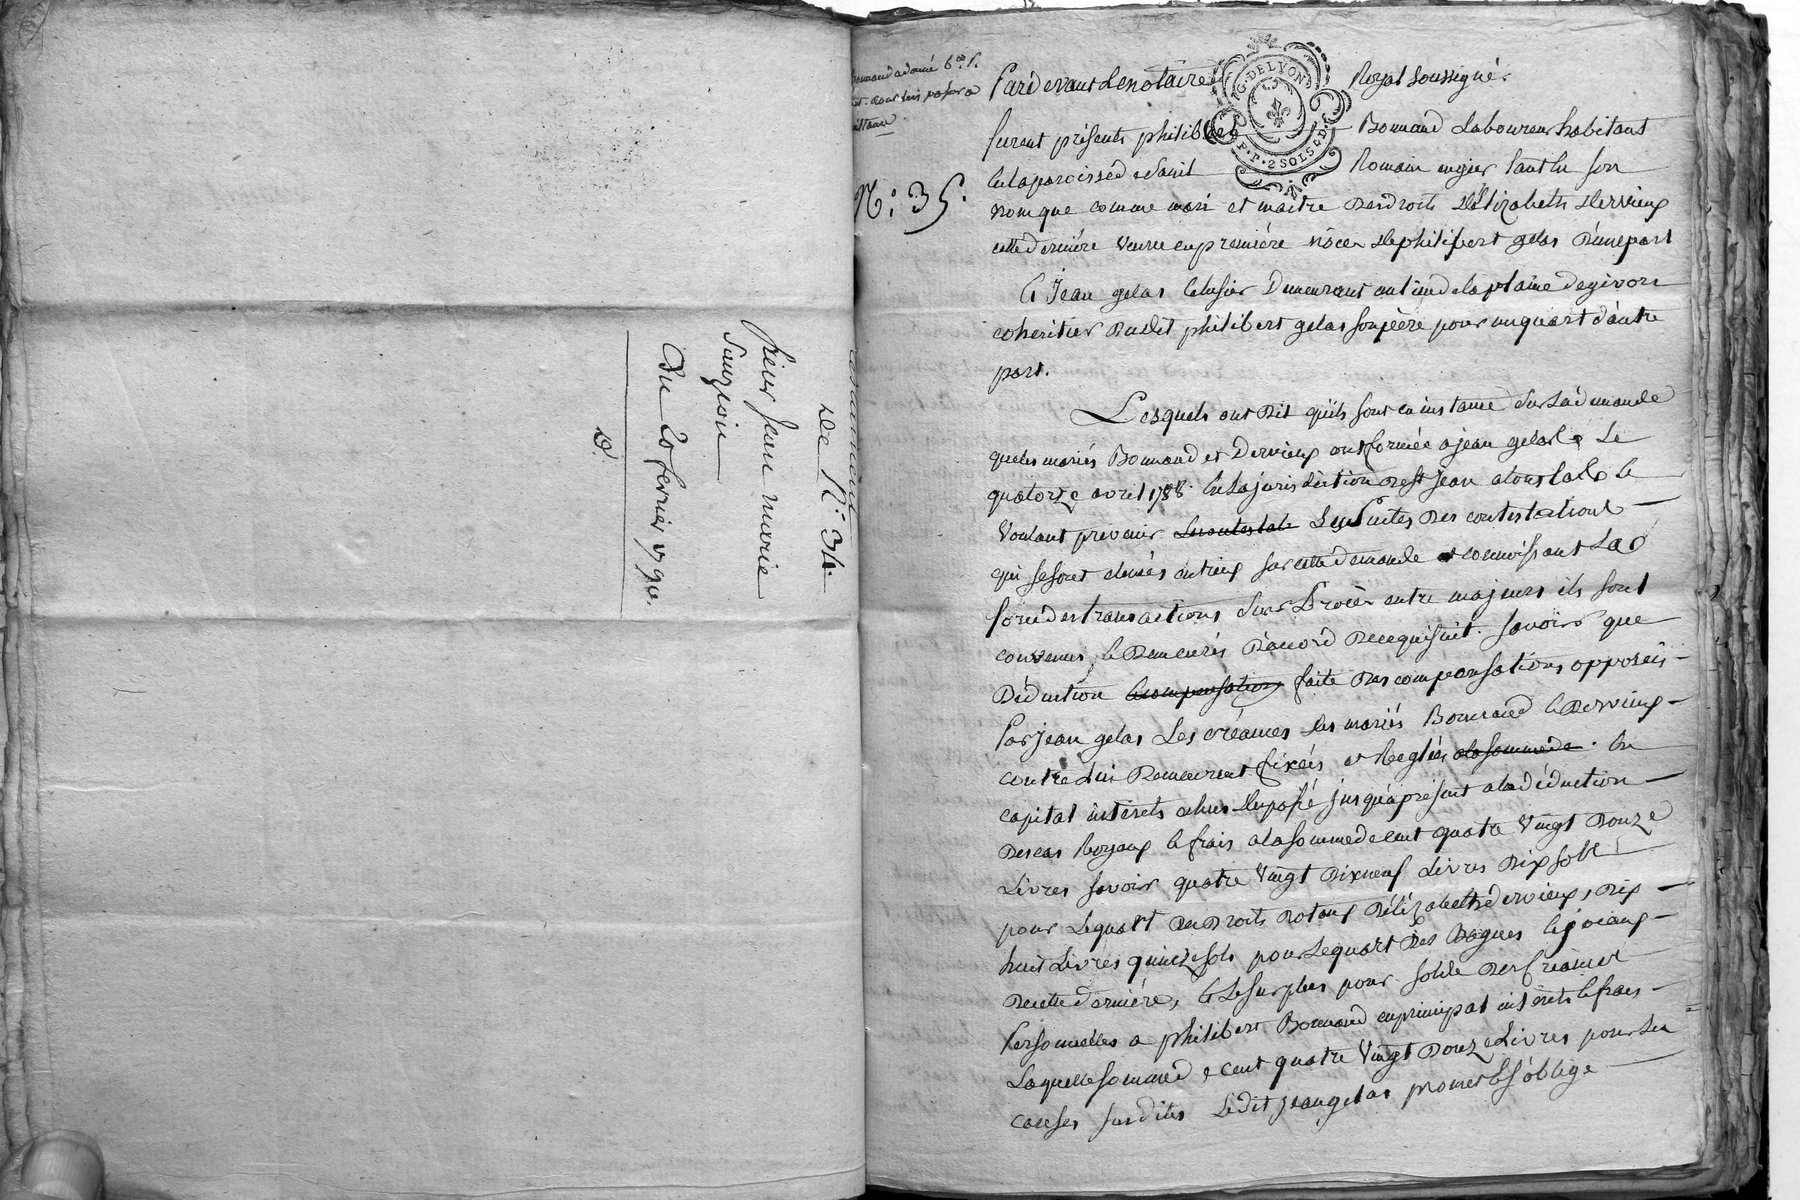 De N.° 34.
Sieur Jean marie
Sauzion
Du 20 fevrier 1790.
D.
N.° 35.
G. DE LYON
P.P. 2 SOLS 4 D.
Pardevant Le notaire Royal soussigné
furent présents philibert Bonnand Laboureur habitant
en la paroisse de Saint Romain en gier tant en son
nom que comme mari et maitre des droits d'Elizabeth dervieux
cette derniére veuve en premiére nôces de philibert gelas d'une part
Et Jean gelas demeurant au lieu de la plaine de givors
coheritier dudit philibert gelas son père pour un quart d'autre
part.
Lesquels ont dit qu'ils sont en instance sur La demande
que les mariés Bonnand et Dervieux ont formée a jean gelas Le
quatorze avril 1788. en La jurisdiction de St jean a toustas Et
voulant prevenir Les suites des contestations
qui se sont elevés entr'eux sur cette demande et connoissant La
force des transactions sur Procès entre majeurs ils sont
convenus, et demeurés d'acord de ce qui suit. savoir que
Déduction faite des compensations opposeés
Par jean gelas Les créances des mariés Bonnand et Dervieux
contre Lui demeurent fixeés et Regleés a la somme de. En
capital interets echus du passé jusqu'a présent a la déduction
des cas Royaux et frais a la somme de cent quatre vingt douze
Livres savoir quatre vingt dix neuf Livres dix sols
pour Le quart des droits dotaux d'élizabeth dervieux, dix
huit Livres quinze sols pour Le quart des Bagues et joiaux
de cette derniére, et Le surplus pour solde des créances
Personnelles a philibert Bonnand en principal interets et frais
Laquelle somme de cent quatre vingt douze Livres pour Les
causes susdites Ledit jean gelas promet et s'oblige